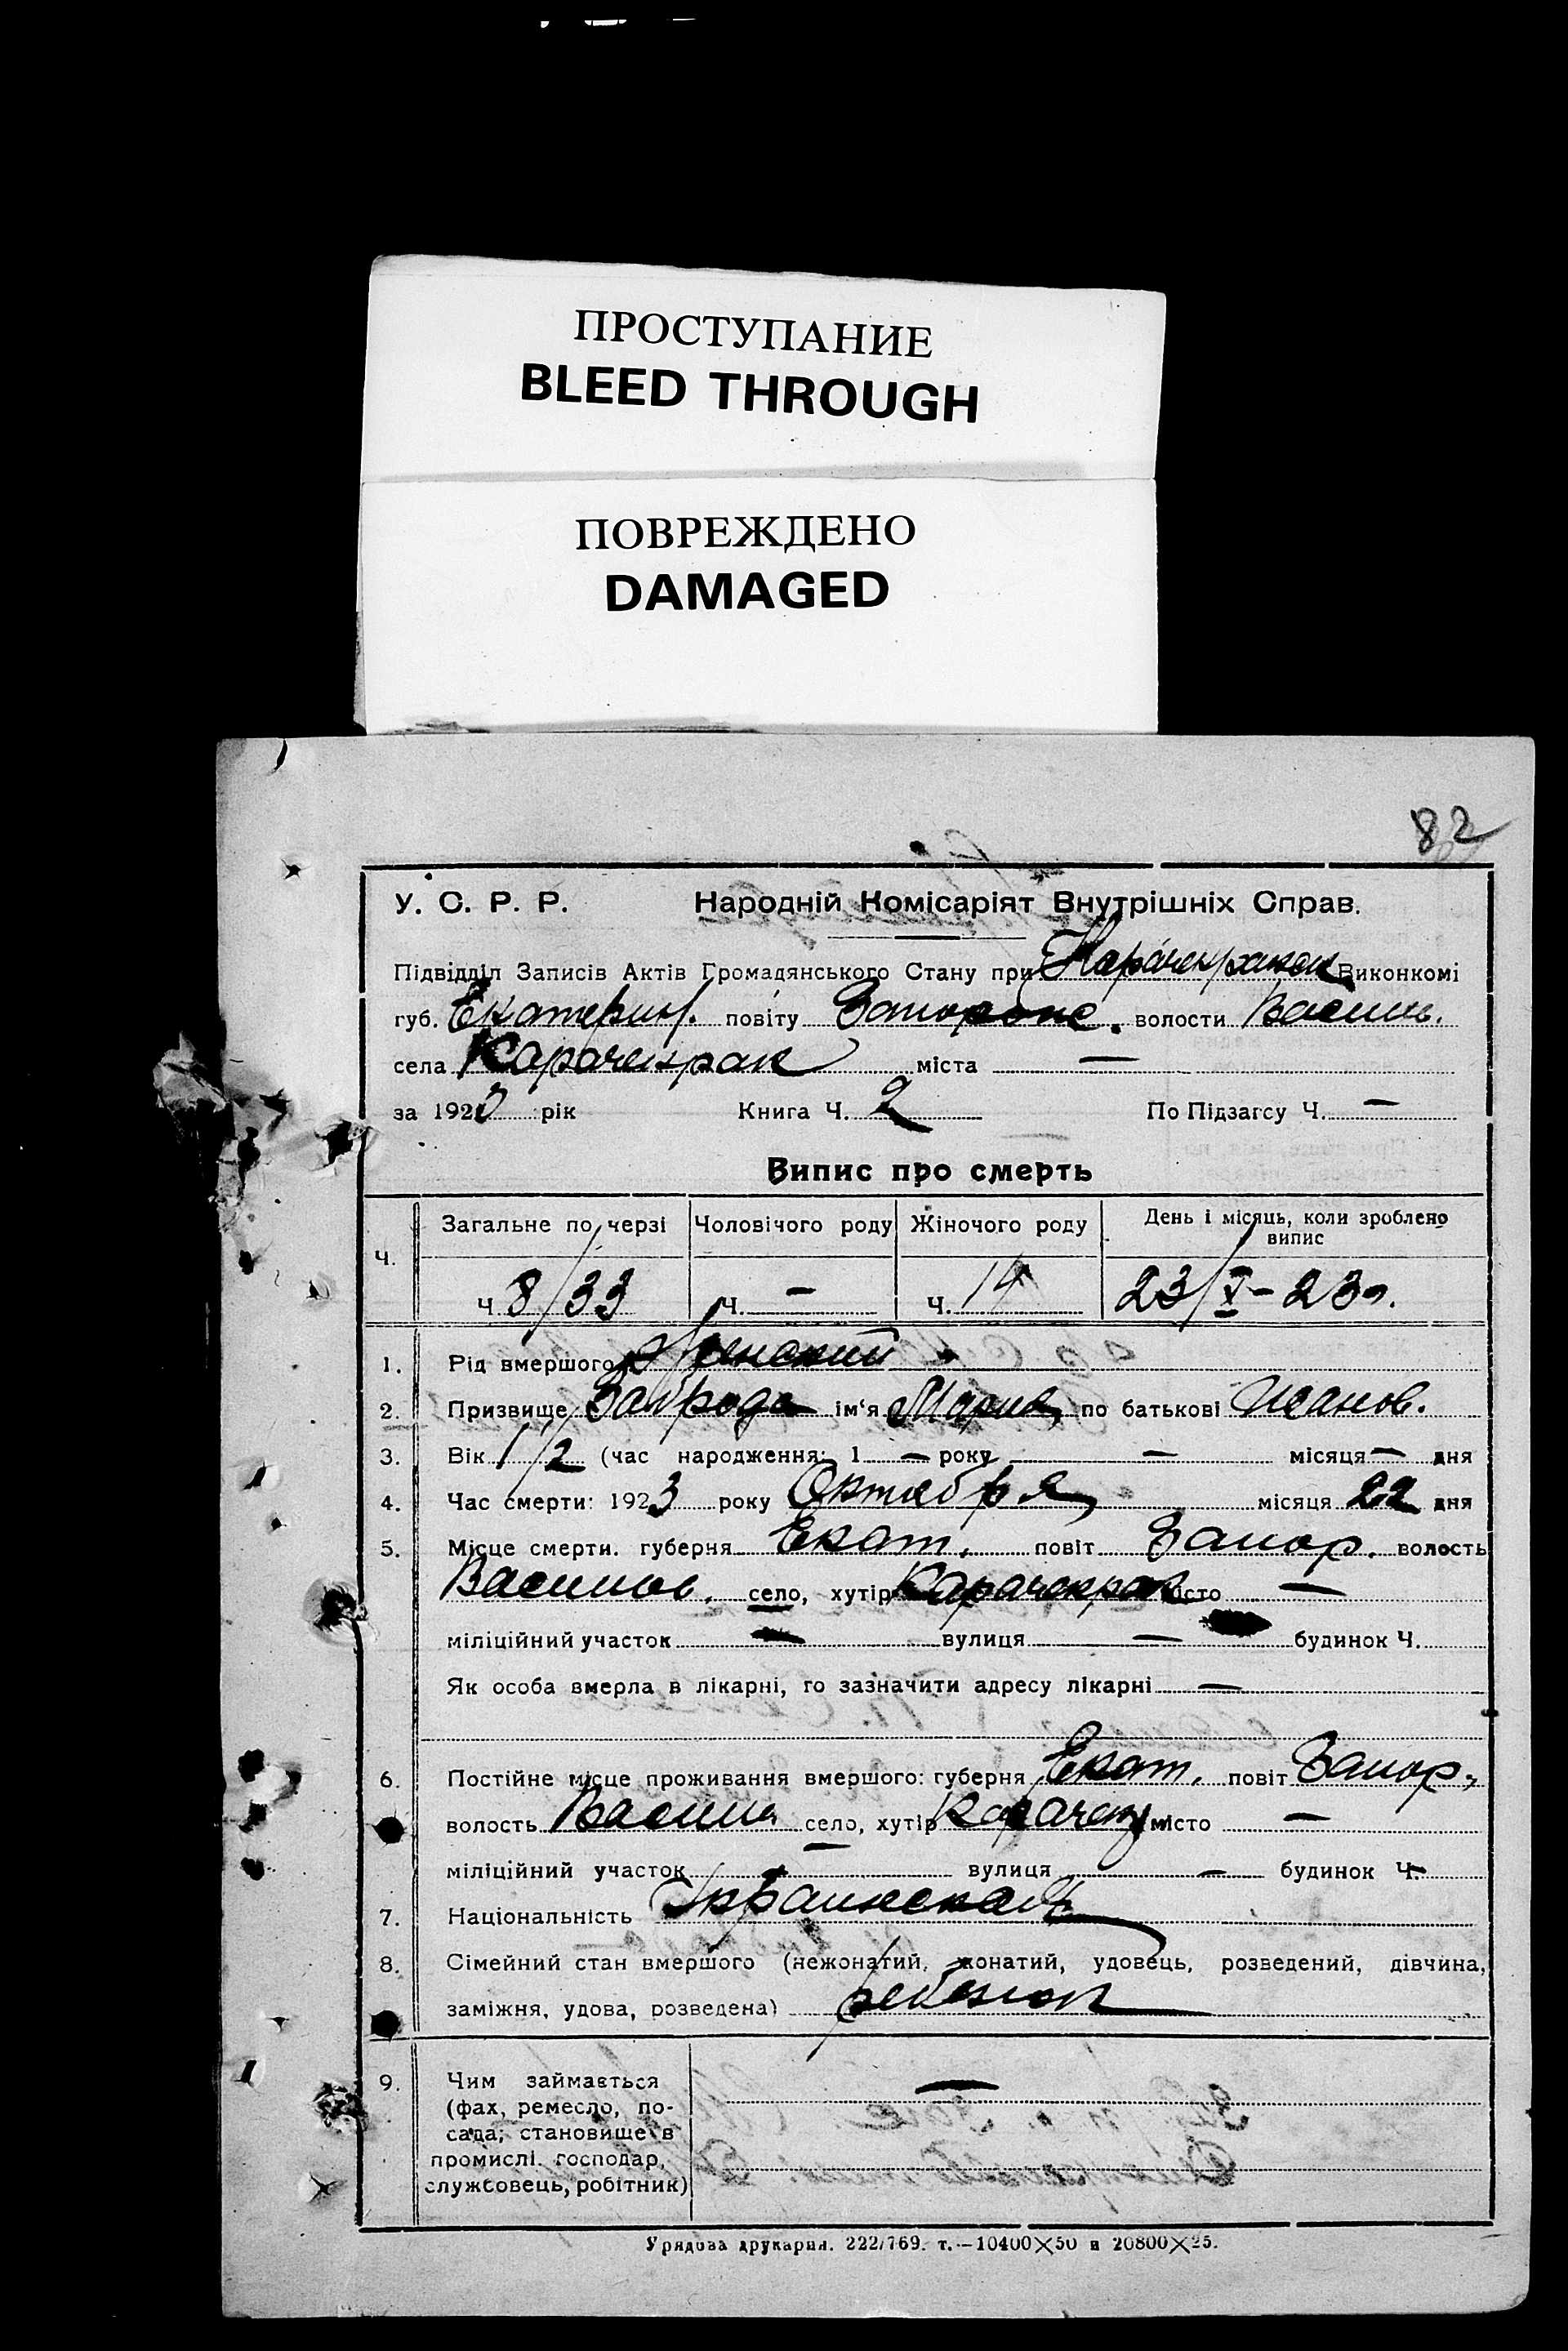 ПРОСТУПАНИЕ
BLEED THROUGH
ПОВРЕЖДЕНО
DAMAGED
82
У. С. Р. Р. Народній Комісаріят Внутрішніх Справ.
Підвідділ Записів Актів Громадянського Стану при Карачекраком Виконкомі
губ. Екатерин. повіту Запорож. волости Васил.
села Карачекрак міста —
за 1923 рік Книга Ч. 2 По Підзагсу Ч. —
Випис про смерть
Ч. Загальне по черзі Чоловічого роду Жіночого роду День і місяць, коли зроблено випис
Ч. 8/33 Ч. — Ч. 14 23/X – 23 г.
1. Рід вмершого Женский
2. Призвище Заброда ім'я Мария по батькові Иванов.
3. Вік 1/2 (час народження: 1 — року — місяця — дня
4. Час смерти: 1923 року Октября місяця 22 дня
5. Місце смерти. губерня Екат. повіт Запор. волость
Васильев. село, хутір Карачекрак місто —
міліційний участок — вулиця — будинок Ч.
Як особа вмерла в лікарні, го зазначити адресу лікарні —
6. Постійне місце проживання вмершого: губерня Екат. повіт Запор.
волость Васил. село, хутір Карачекр місто —
міліційний участок — вулиця — будинок Ч. —
7. Національність Украинская
8. Сімейний стан вмершого (нежонатий, жонатий, удовець, розведений, дівчина,
заміжня, удова, розведена) ребенок
9. Чим займається —
(фах, ремесло, по-
сада, становище в
промислі. господар,
службовець, робітник)
Урядова друкарня. 222/769. т.—10400×50 и 20800×25.